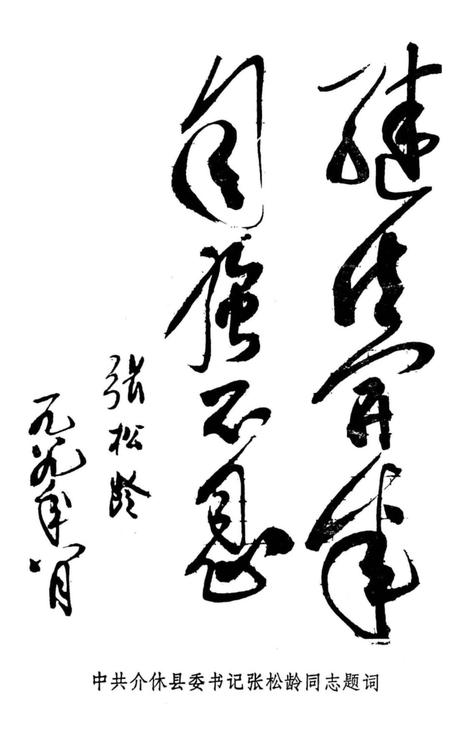 继往开来
自强不息
张松龄
一九八九年八月
中共介休县委书记张松龄同志题词